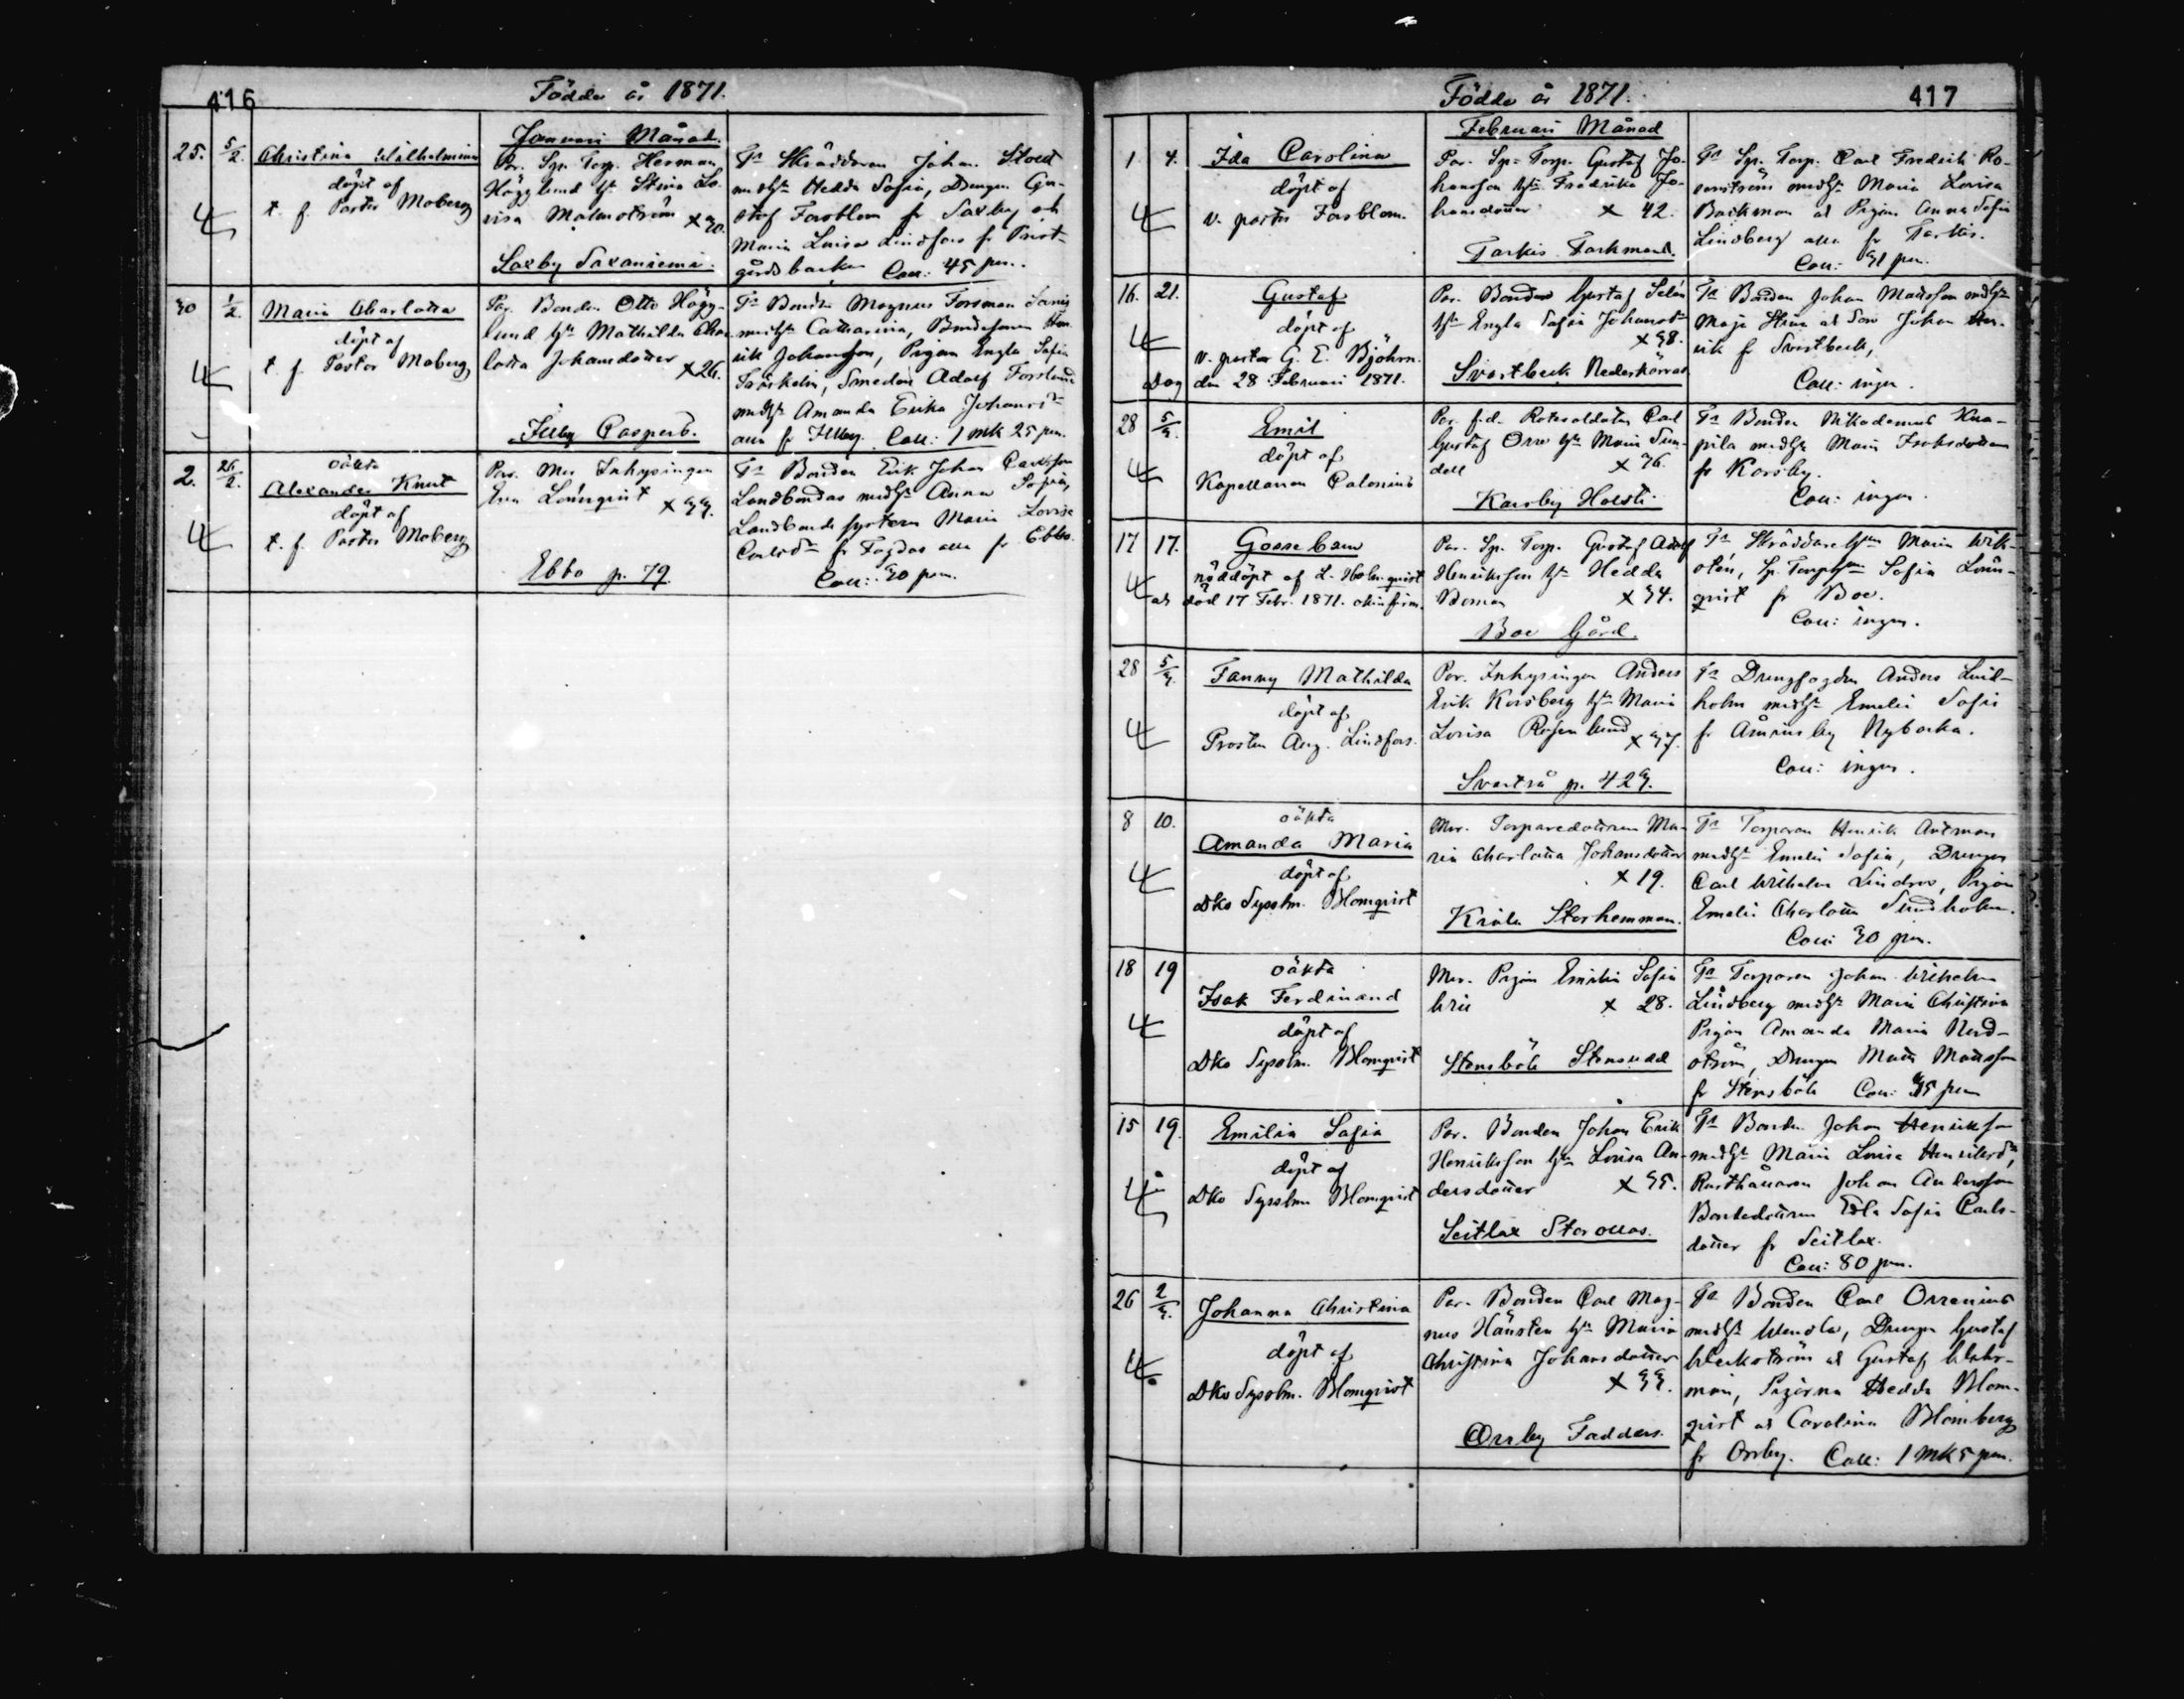 416
Födde år 1871.
Januari Månad.
25. 5/2. Christina Wilhelmina
döpt af
t. f. Pastor Moberg
Par. Sp. Torp. Herman
Högglund h. Stina Lo-
visa Malmström x 30.
Saxby Saxaniemi.
Fr Skräddaren Johan
med h. Hedda Sofia, Drengen Gu-
staf Forsblom fr Saxby och
Maria Lovisa Lindfors fr Prest-
gårdsbacka Coll: 45 pen.
30 1/2. Maria Charlotta
döpt af
t. f. Pastor Moberg
Par. Bonden Otto Högg-
lund h. Mathilda Char-
lotta Johansdotter x 26.
Illby Caspers.
Fr Bonden Magnus Forsman
med h. Catharina, Bondesonen Hen-
rik Johansson, Pigan Engla Sofia
Smeden Adolf Forslund
med h. Amanda Erika Johansd:r
alla fr Illby. Coll: 1 mk 25 pen.
2. 26/2. oäkta
Alexander Knut
döpt af
t. f. Pastor Moberg
Par. Mor Inhysingen
Eva Lönnqvist x 33.
Ebbo p. 79
Fr Bonden Erik Johan Carlsson
Landbondas med h. Anna Sofia,
Landbonde systern Maria Lovisa
Carlsd:r fr Fagdas alla fr Ebbo.
Coll: 30 pen.
Födde år 1871.
417
Februari Månad
1 4. Ida Carolina
döpt af
v. pastor Forsblom.
Par. Sp. Torp. Gustaf Jo-
hansson h. Fredrika Jo-
hansdotter x 42.
Tarkis Tarkmans.
Fr Sp. Torp. Carl Fredrik Ro-
senström med h. Maria Lovisa
Backman och Pigan Anna Sofia
Lindberg alla fr Tarkis.
Coll: 31 pen.
16. 21. Gustaf
döpt af
v. pastor G. E. Björkm.
Dog den 28 Februari 1871.
Par. Bonden Gustaf Selén
h. Engla Sofia Johansd:r
x 38.
Svartbeck Nederkärras
Fr Bonden Johan Mattsson med h.
Maja Stina och Son Johan Hen-
rik fr Svartbeck,
Coll: ingen.
28 5/3. Emil
döpt af
Kapellanen Calonius
Par. f.d. Rotesoldaten Carl
Gustaf Orre h. Maria Sun-
dell x 36.
Karsby Holsti.
Fr Bonden Nikodemus Kna-
pila med h. Maria Isaksdotter
fr Karsby.
Coll: ingen.
17 17. Gossebarn
nöddöpt af L. Holmqvist
och död 17 Febr. 1871. okonfirm.
Par. Sp. Torp. Gustaf Adolf
Henriksson h. Hedda
Boman x 34.
Boe Gård.
Fr Skräddareh. Maria Wik-
stén, Sp. Torp. Sofia Lönn-
qvist fr Boe.
Coll: ingen.
28 5/3. Fanny Mathilda
döpt af
Prosten Aug. Lindfors.
Par. Inhysingen Anders
Erik Korsberg h. Maria
Lovisa Rosenlund x 37.
Svartså p. 423.
Fr Drengfogden Anders Lind-
holm med h. Emelie Sofia
fr Åminsby Nybacka.
Coll: ingen.
8 10. oäkta
Amanda Maria
döpt af
Dks Sysslm. Blomqvist
Mor. Torparedottren Ma-
ria Charlotta Johansdotter
x 19.
Kråkö Storhemman.
Fr Torparen Henrik Antman
med h. Emelie Sofia, Drengen
Carl Wilhelm Lindroos, Pigan
Emelie Charlotta Sundholm.
Coll: 30 pen.
18 19 oäkta
Isak Ferdinand
döpt af
Dks Sysslm. Blomqvist
Mor. Pigan Emelie Sofia
x 28.
Stensböle Stensudd
Fr Torparen Johan Wilhelm
Lindberg med h. Maria Christina
Pigan Amanda Maria Nord-
ström, Drengen Matts Mattsson
fr Stensböle Coll: 35 pen
15 19. Emilia Sofia
döpt af
Dks Sysslm Blomqvist
Par. Bonden Johan Erik
Henriksson h. Lovisa An-
dersdotter x 35.
Seitlax Storollas.
Fr Bonden Johan Henriksson
med h. Maria Lovisa Henriksd:r,
Rusthållaren Johan Andersson
Bondedottren Edla Sofia Carls-
dotter fr Seitlax.
Coll: 80 pen.
26 2/3. Johanna Christina
döpt af
Dks Sysslm. Blomqvist
Par. Bonden Carl Mag-
nus Hänstén h. Maria
Christina Johansdotter
x 33.
Orrby Fadders.
Fr Bonden Carl Orrenius
med h. Wendla, Drengen Gustaf
Weckström och Gustaf Wahr-
man, Pigorna Hedda Blom-
qvist och Carolina Blomberg
fr Orrby. Coll: 1 mk 5 pen.